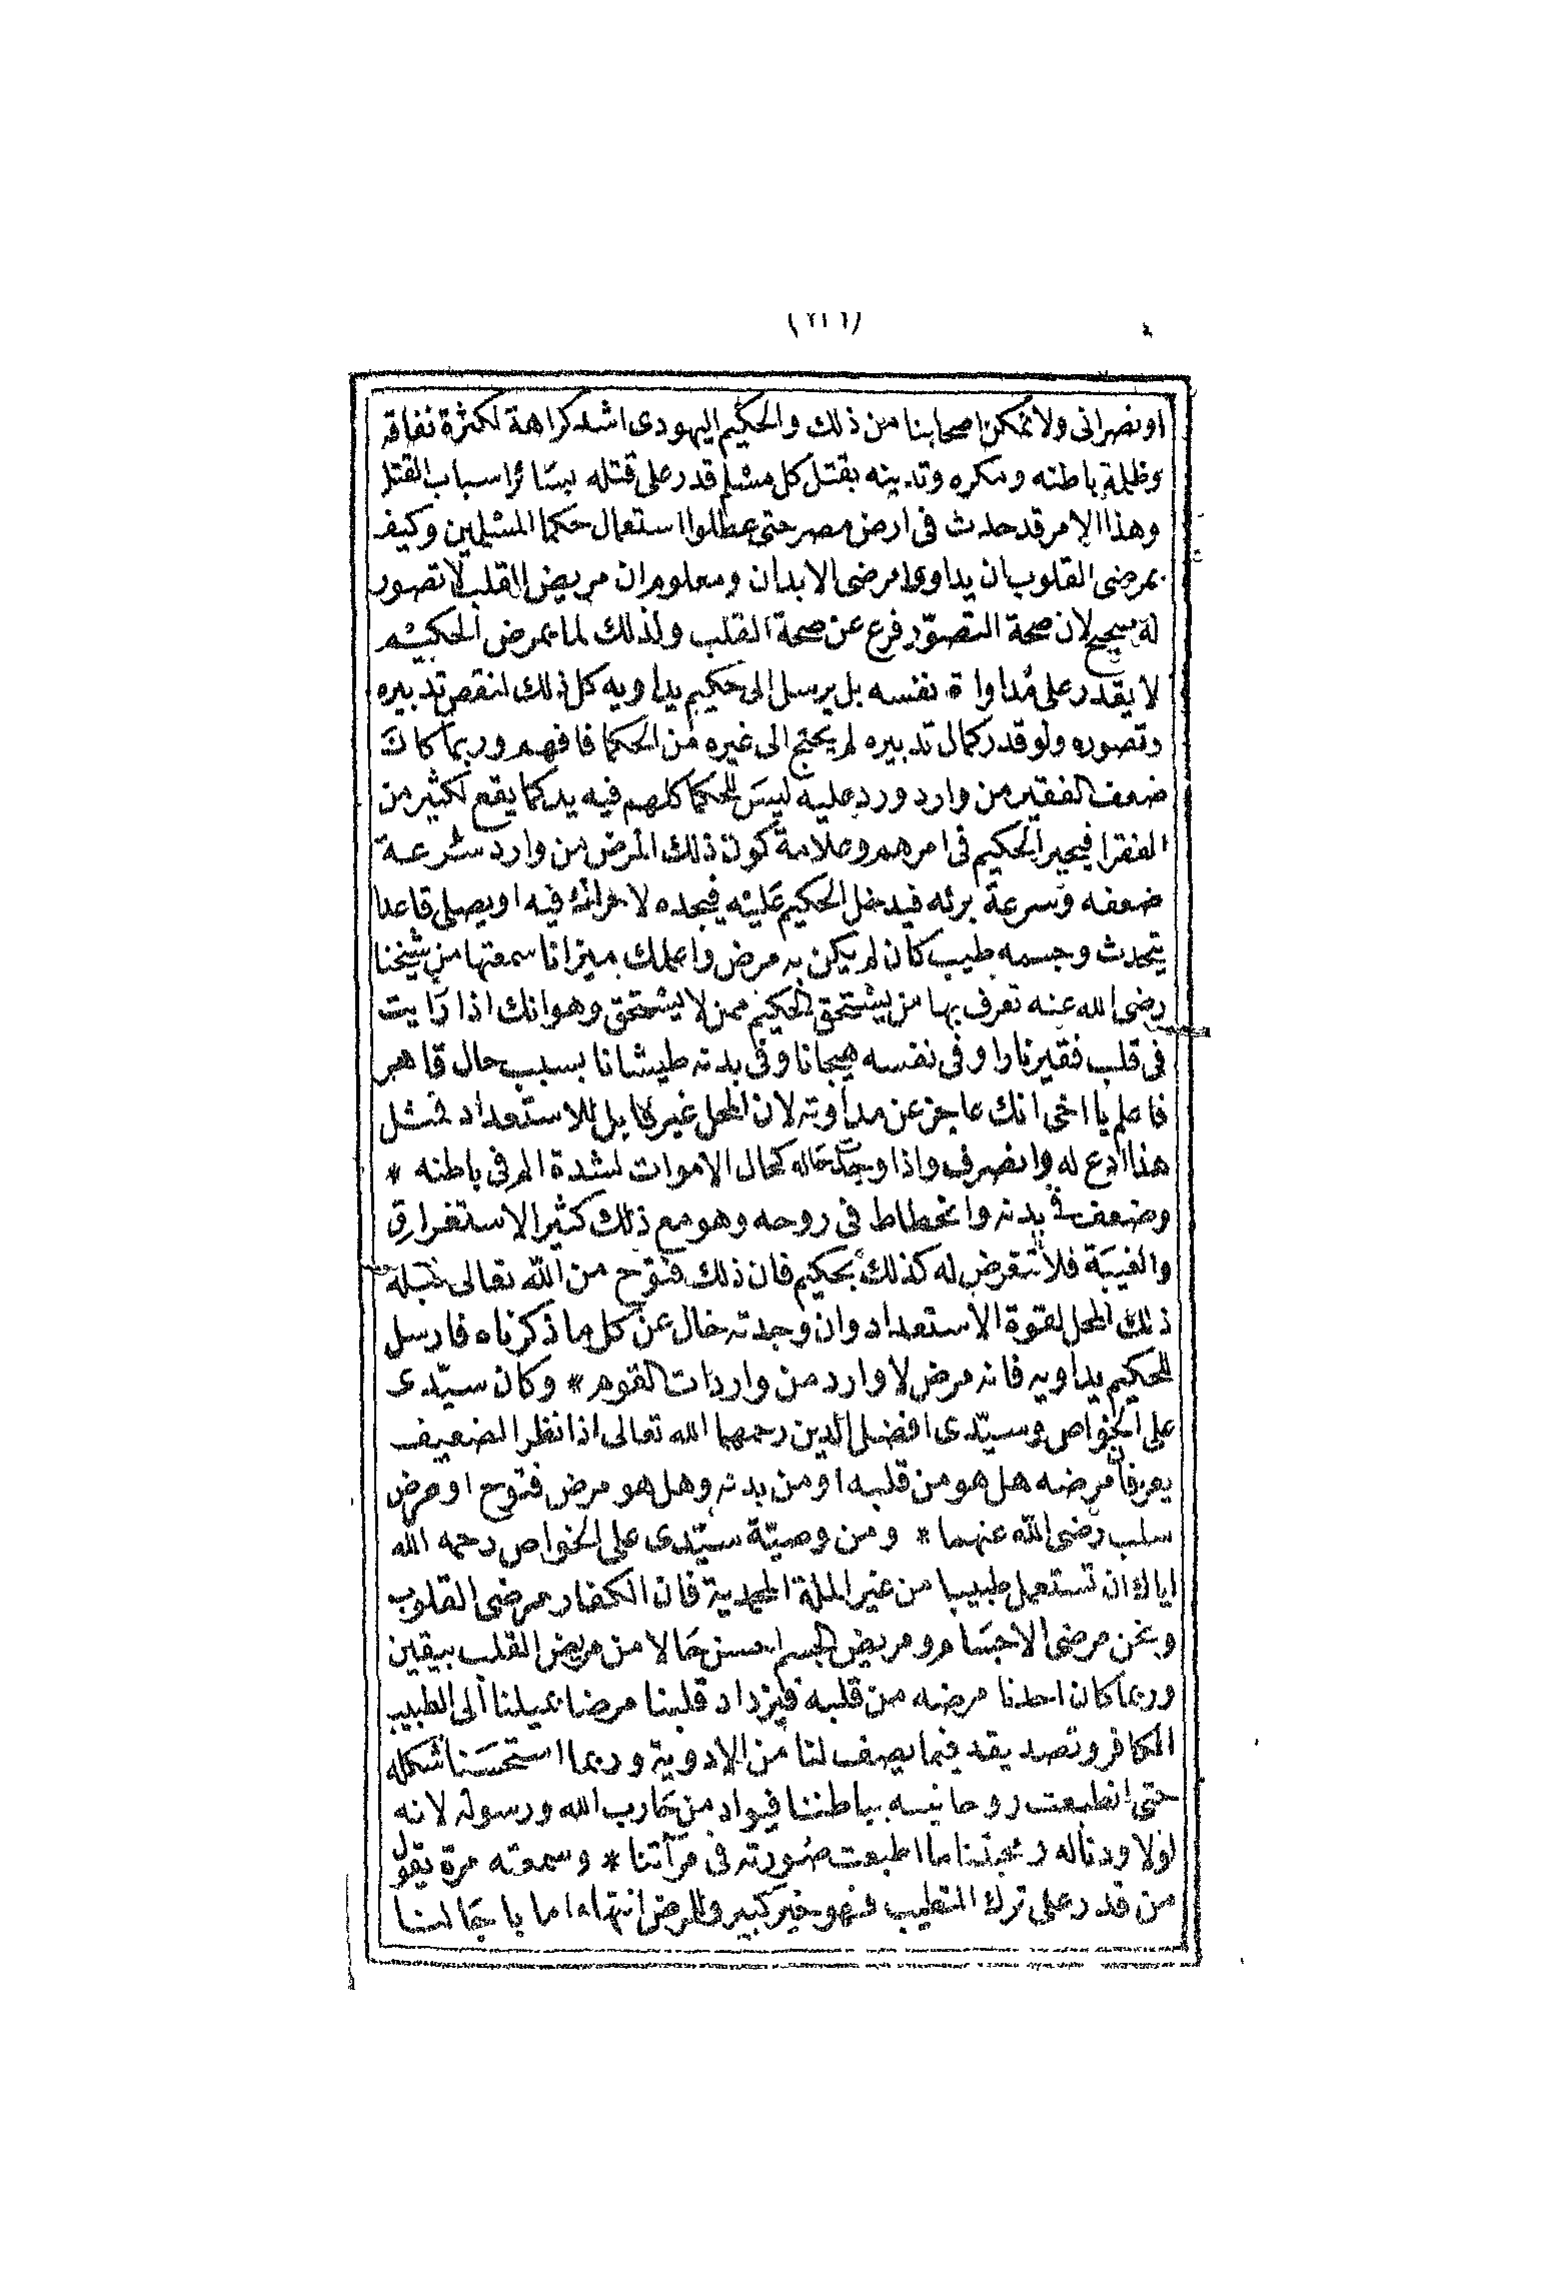 (٢١٦)
او نصرانى ولا نمكن اصحابنا من ذلك والحكيم اليهودى اشد كراهة لكثرة نفاقه
وظلمة باطنه ومكره وتدينه بقتل كل مسلم قدر على قتله بسائر اسباب القتل
وهذا الامر قد حدث فى ارض مصر حتى عطلوا استعمال حكما المسلمين وكيف
بمرضى القلوب ان يداووا مرضى الابدان ومعلوم ان مريض القلب لا تصور
له صحيح لان صحة التصوّر فرع عن صحة القلب ولذلك لما يمرض الحكيم
لا يقدر على مداواة نفسه بل يرسل الى حكيم يداويه كل ذلك لنقص تدبيره
وتصوره ولو قدر كمال تدبيره لم يحتج الى غيره من الحكما فافهم وربما كان
ضعف الفقير من وارد ورد عليه ليس للحكما كلهم فيه يد كما يقع لكثير من
الفقرا فيحير الحكيم فى امرهم وعلامة كون ذلك المرض من وارد سرعة
ضعفه وسرعة برئه فيدخل الحكيم عليه فيجده لا حراك فيه او يصلى قاعدا
يتحدث وجسمه طيب كان لم يكن به مرض واعملك ميزانا سمعتها من شيخنا
رضى الله عنه تعرف بها من يستحق الحكيم ممن لا يستحق وهو انك اذا رايت
فى قلب فقير نارا وفى نفسه هيجانا وفى بدنه طيشانا بسبب حال قاهر
فاعلم يا اخى انك عاجز عن مداوته لان المحل غير قابل للاستعداد فمثل
هذا ادع له وانصرف واذا وجد حاله كحال الاموات لشدة الم فى باطنه *
وضعف فى بدنه وانحطاط فى روحه وهو مع ذلك كثير الاستغراق
والغيبة فلا تتعرض له كذلك بحكيم فان ذلك فتوح من الله تعالى قبله
ذلك المحل لقوة الاستعداد وان وجدته خال عن كل ما ذكرناه فارسل
للحكيم يداويه فانه مرض لا وارد من واردات القوم * وكان سيّدى
على الخواص وسيّدى افضل الدين رحمهما الله تعالى اذا نظر الضعيف
يعرفان مرضه هل هو من قلبه او من بدنه وهل هو مرض فتوح او مرض
سلب رضى الله عنهما * ومن وصيّة سيّدى على الخواص رحمه الله
اياك ان تستعمل طبيبا من غير الملة المحمدية فان الكفار مرضى القلوب
ونحن مرضى الاجسام ومريض الجسم احسن حالا من مريض القلب بيقين
وربما كان احدنا مرضه من قلبه فيزداد قلبنا مرضا بميلنا الى الطبيب
الكافر وتصديقه فيما يصف لنا من الادوية وربما استحسنا شكله
حتى انطبعت روحانيته بباطننا فيواد من حارب الله ورسوله لانه
لولا ودناله ومحبتنا ما انطبعت صورته فى مرآتنا * وسمعته مرة يقول
من قدر على ترك التطبب فهو خير كبير والمرض انتهاء اما يا جالسنا